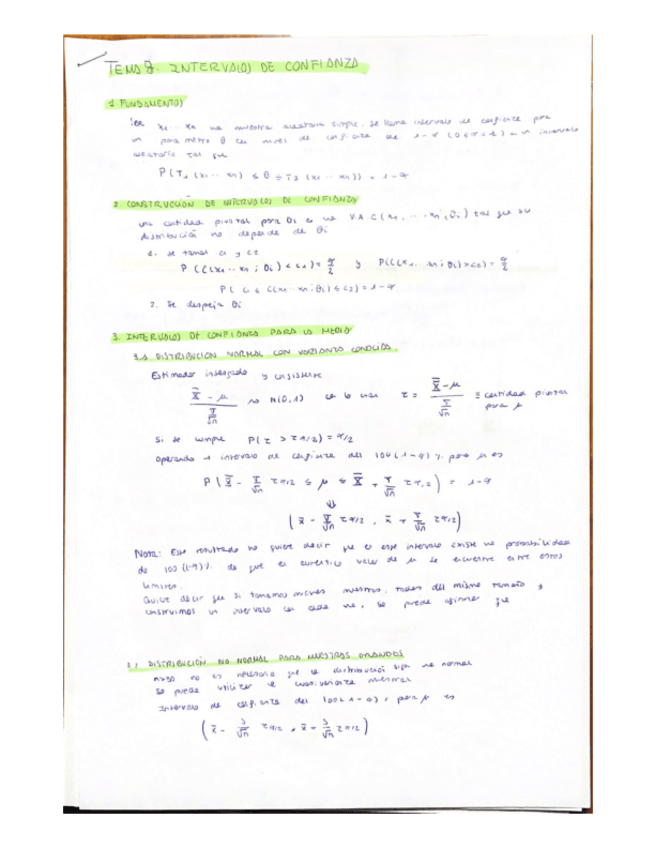 TEMA 7. INTERVALOS DE CONFIANZA
1 FUNDAMENTOS
Sea x₁...xₙ una muestra aleatoria simple. Se llama intervalo de confianza para
un parámetro θ con nivel de confianza de 1-α (0≤α≤1) a un intervalo
aleatorio tal que
P(T₁(x₁...xₙ) ≤ θ ≤ T₂(x₁...xₙ)) = 1-α
2. CONSTRUCCIÓN DE INTERVALOS DE CONFIANZA
una cantidad pivotal para θi es una V.A C(x₁,...xₙ;θi) tal que su
distribución no depende de θi
1. Se toman c₁ y c₂
P(C(x₁...xₙ;θi)<c₁)=α/2 y P(C(x₁...xₙ;θi)>c₂)=α/2
P(c₁≤C(x₁...xₙ;θi)≤c₂)=1-α
2. Se despeja θi
3. INTERVALOS DE CONFIANZA PARA LA MEDIA
3.1 DISTRIBUCION NORMAL CON VARIANZA CONOCIDA.
Estimador insesgado y consistente
(x̄-μ)/(σ/√n) N(0,1) z = (x̄-μ)/(σ/√n) ≡ cantidad pivotal
para μ
Si se cumple P(z > zα/2) = α/2
operando intervalo de confianza del 100(1-α)% para μ es
P(x̄ - σ/√n zα/2 ≤ μ ≤ x̄ + σ/√n zα/2) = 1-α
⇓
(x̄ - σ/√n zα/2, x̄ + σ/√n zα/2)
Nota: Este resultado no quiere decir que en este intervalo existe una probabilidad
de 100(1-α)% de que el auténtico valor de μ se encuentre entre estos
limites.
Quiere decir que si tomamos muchas muestras, todas del mismo tamaño y
construimos un intervalo con cada una, se puede afirmar que
DISTRIBUCIÓN NO NORMAL PARA MUESTRAS GRANDES
no es necesario que la distribución siga una normal
Se puede utilizar la cuasivarianza muestral
Intervalo de confianza del 100(1-α)% para μ es
(x̄ - S/√n zα/2, x̄ + S/√n zα/2)